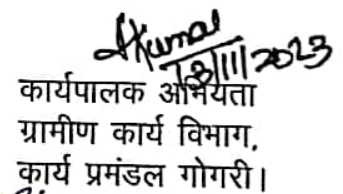 AKumar
13/11/2023
कार्यपालक अभियंता
ग्रामीण कार्य विभाग,
कार्य प्रमंडल गोगरी।